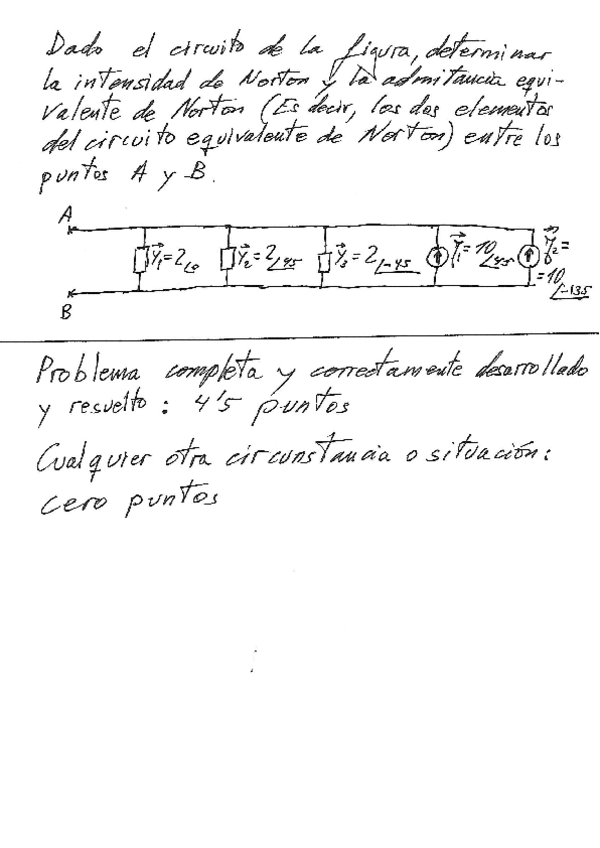 Dado el circuito de la figura, determinar
la intensidad de Norton y la admitancia equi-
valente de Norton (Es decir, los dos elementos
del circuito equivalente de Norton) entre los
puntos A y B.
A
Y₁=2∠0 Y₂=2∠45 Y₃=2∠-45 =10∠45 =
=10∠-135
B
Problema completa y correctamente desarrollado
y resuelto: 4'5 puntos
Cualquier otra circunstancia o situación:
cero puntos